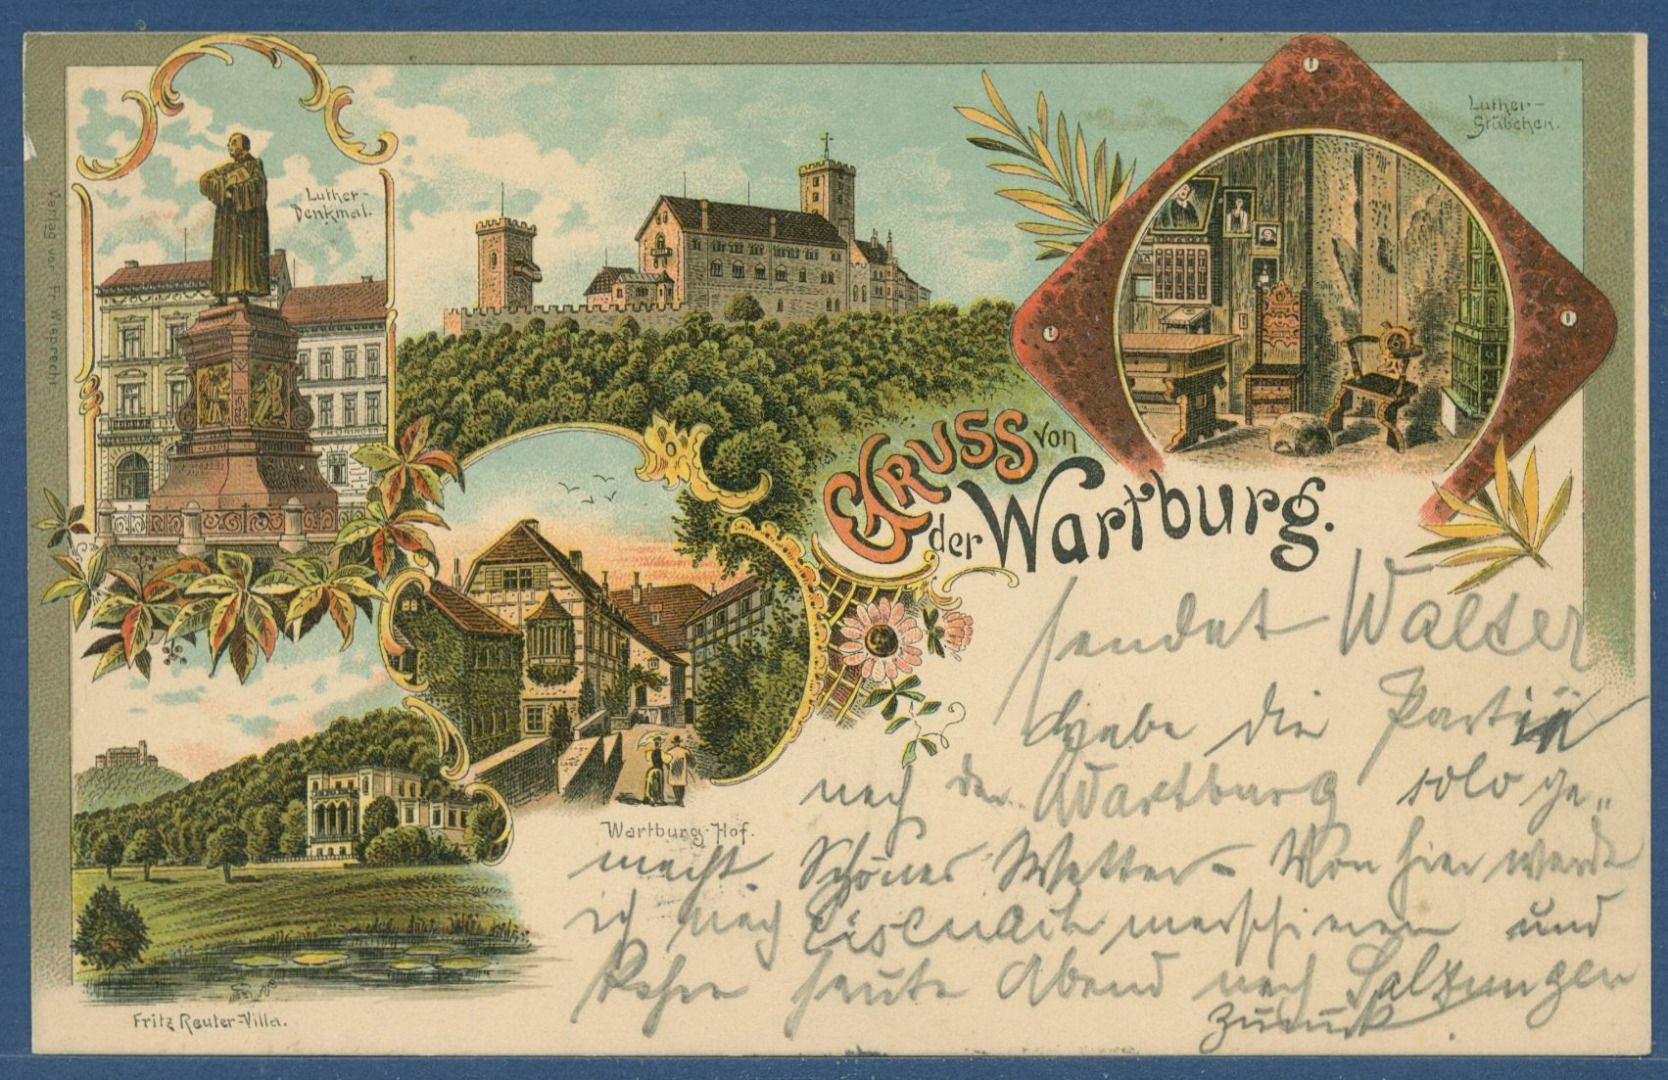 Luther-
Denkmal.
Luther-
Stübchen.
Verlag von Fr. Waprecht.
Gruss von
der Wartburg.
sendet Walter
Habe die Partie
nach der Wartburg solo ge„
macht. Schönes Wetter – Von hier werde
ich nach Eisenach marschieren und
kehre heute Abend nach Salzungen
zurück.
Wartburg-Hof.
Fritz Reuter-Villa.